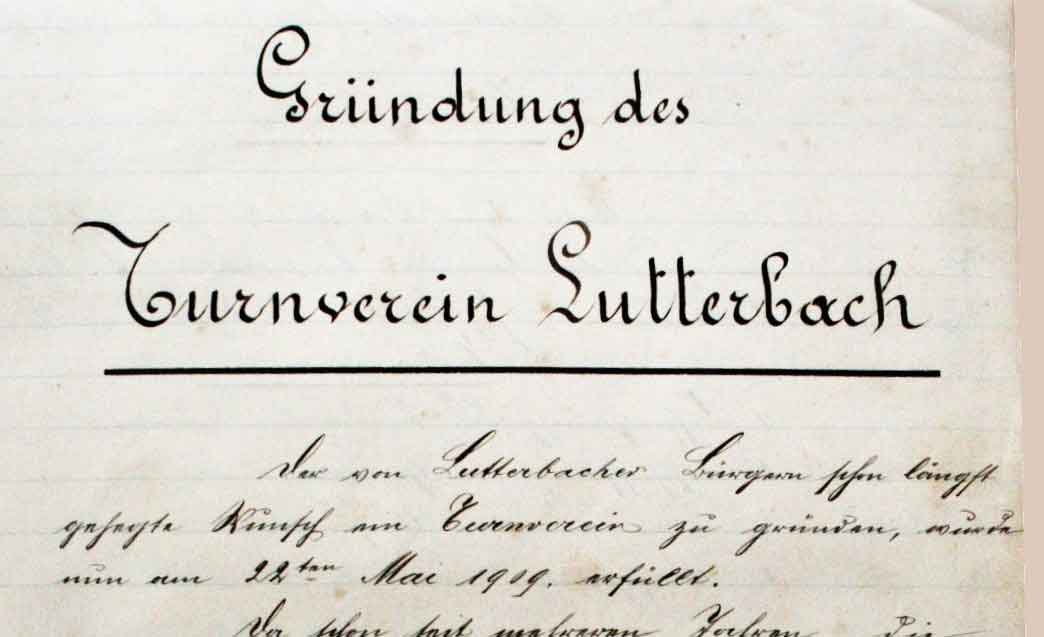 Gründung des
Turnverein Lutterbach
Der von Lutterbacher Bürgern schon längst
gehegte Wunsch ein Turnverein zu gründen, wurde
nun am 22ten Mai 1909. erfüllt.
Da schon seit mehreren Jahren die